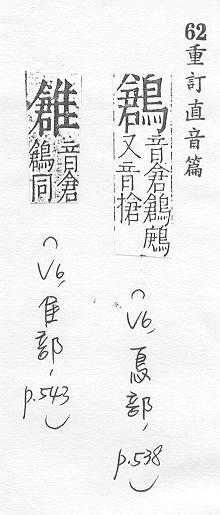 62 重訂直音篇
鶬 音倉鶬鶊
又音槍
(V6, 鳥部, p.538)
音倉
鶬同
(V6, 隹部, p.543)